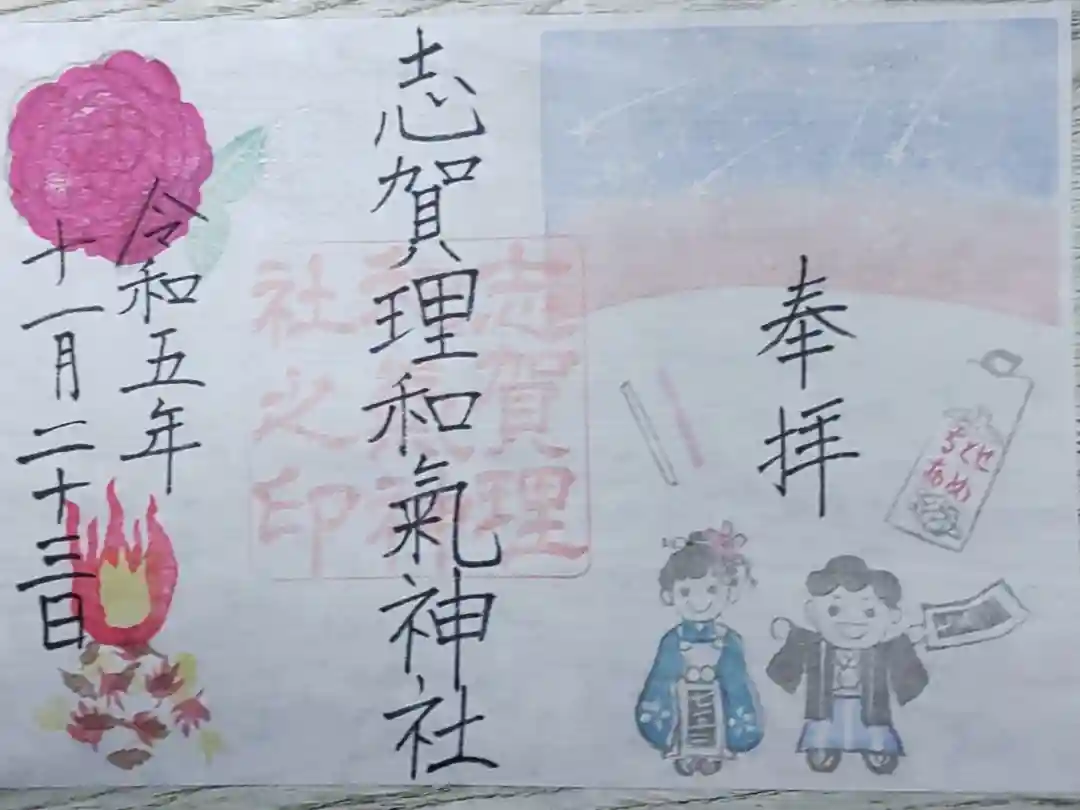 奉拝
ちとせ
あめ
志賀理和氣神社
志賀理
和氣神
社之印
令和五年
十一月二十三日